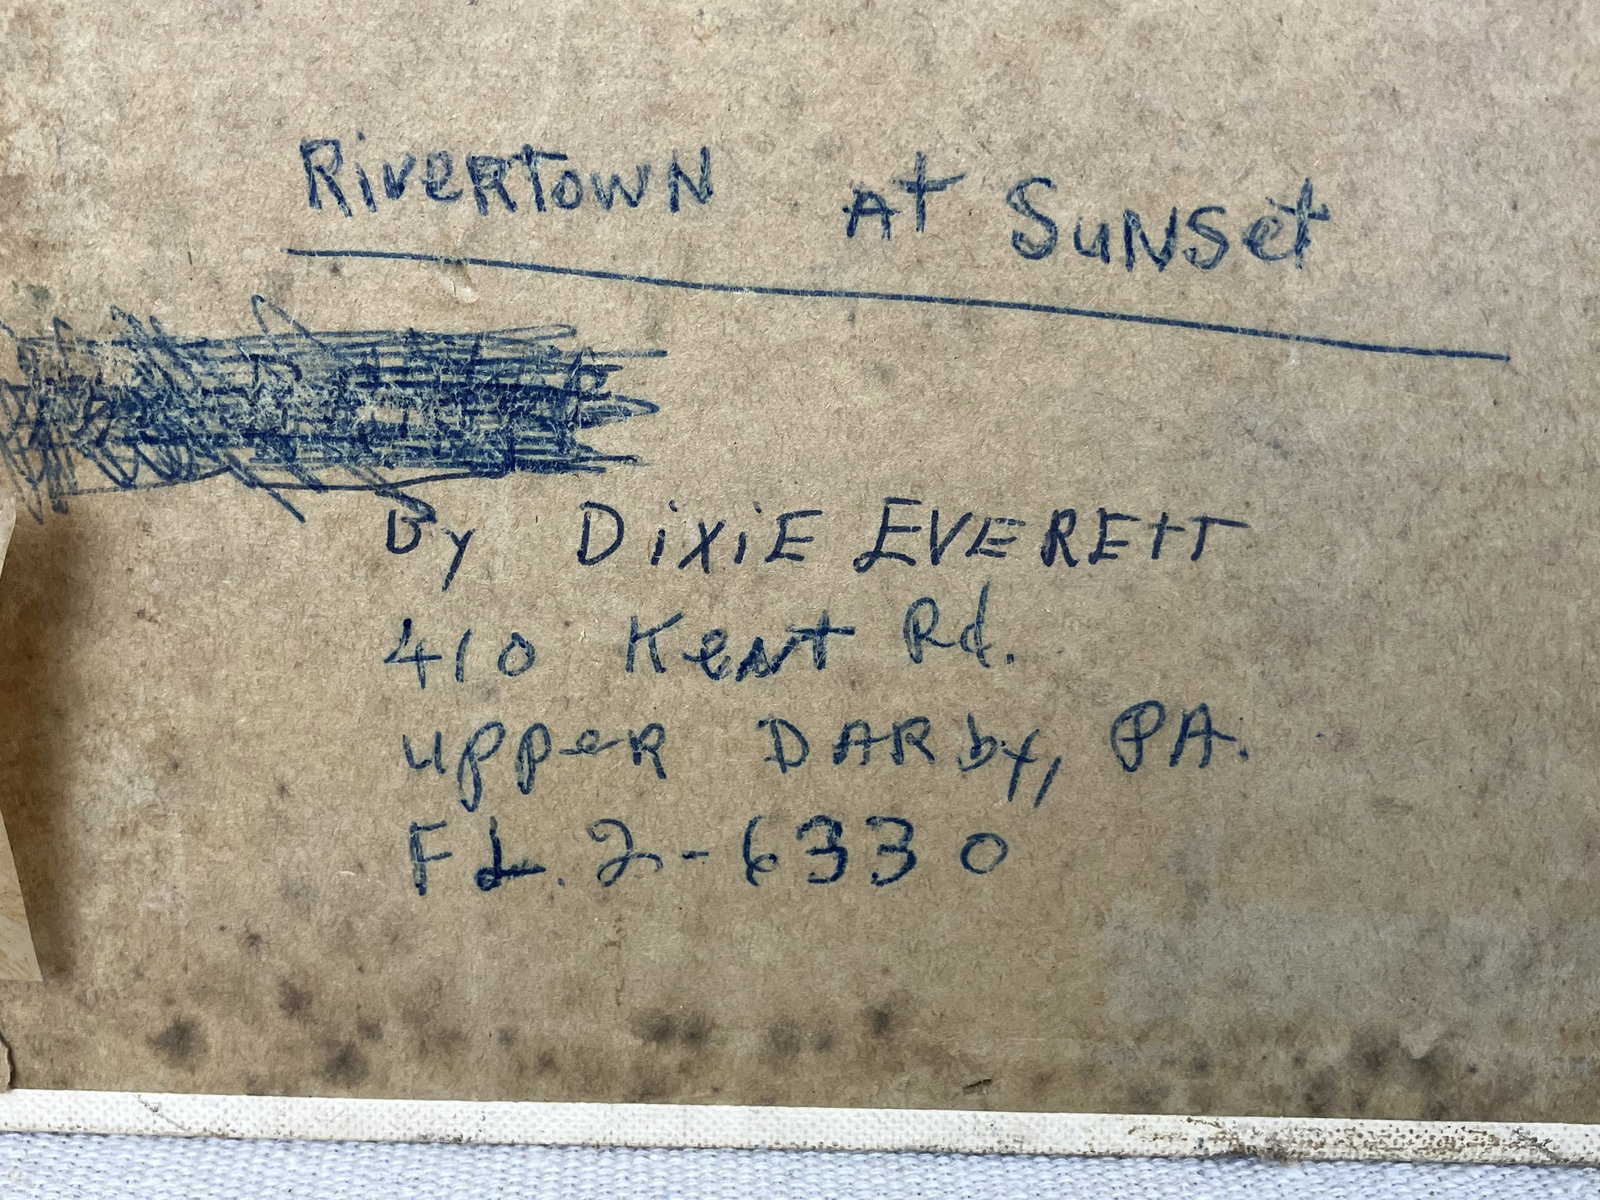 Rivertown At Sunset
By Dixie Everett
410 Kent Rd.
Upper Darby, PA.
FL.2-6330